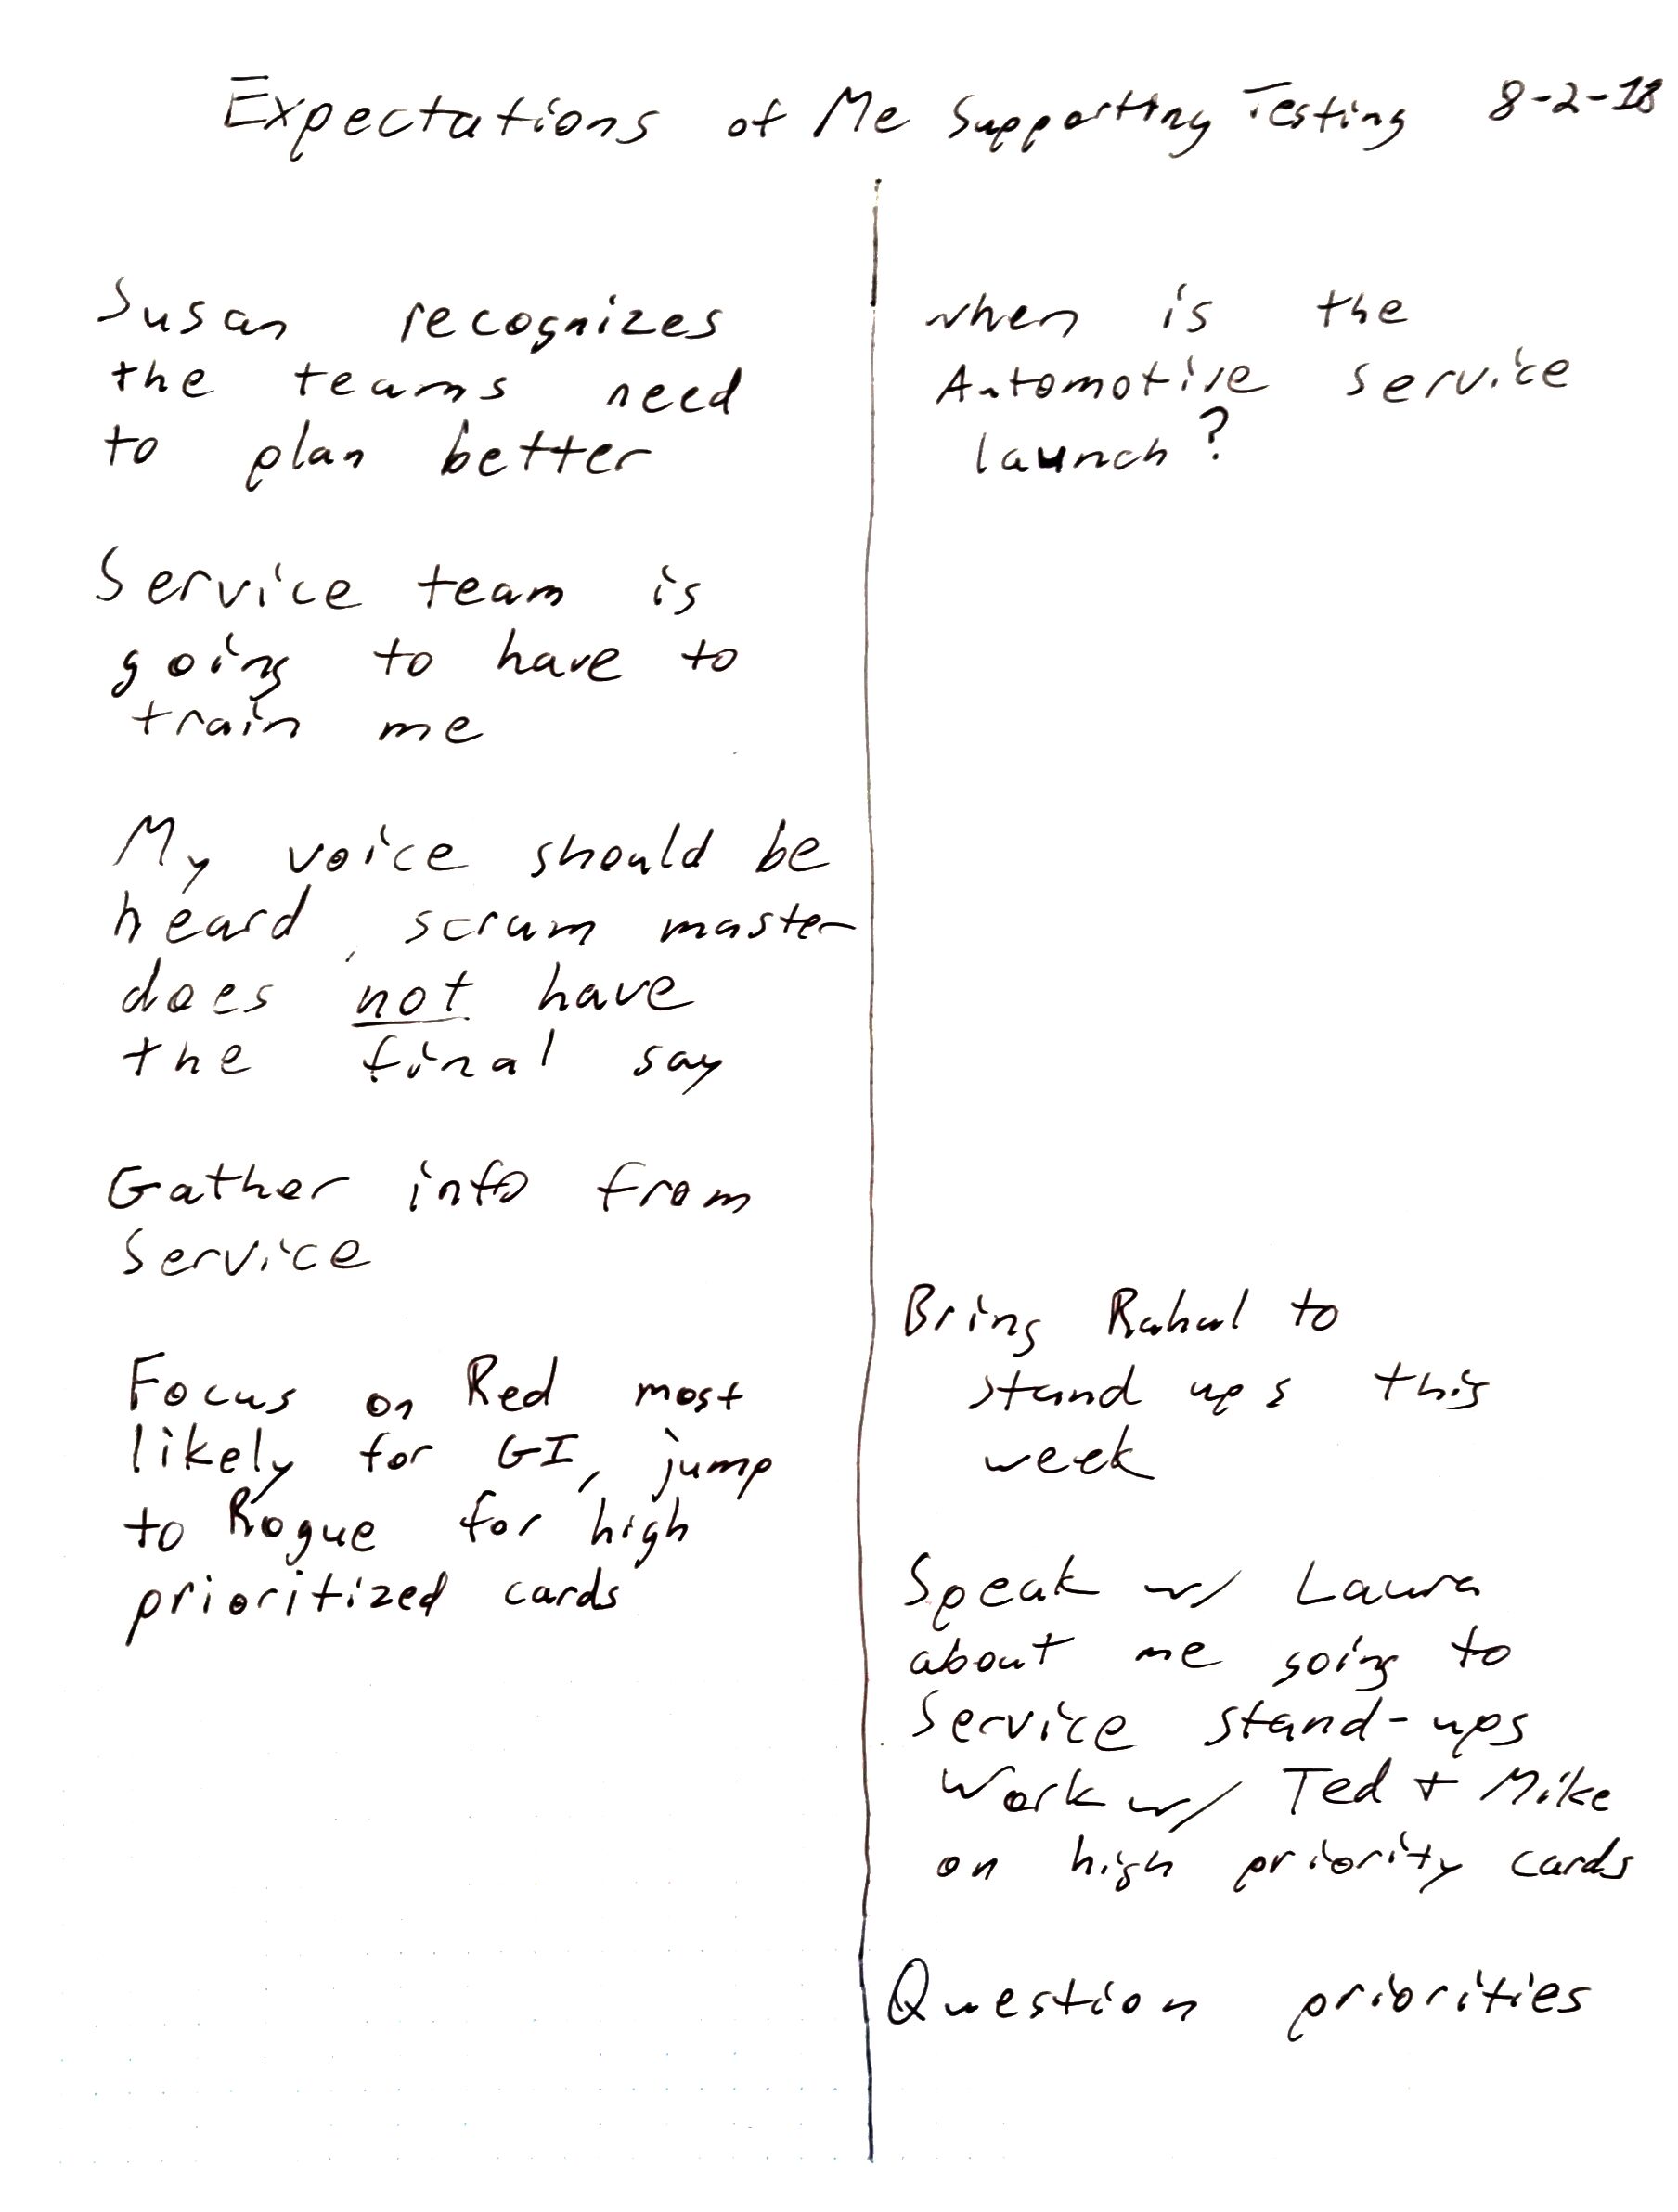 Expectations of Me Supporting Testing 8-2-18
Susan recognizes
the teams need
to plan better
Service team is
going to have to
train me
My voice should be
heard, scrum master
does not have
the final say
Gather info from
Service
Focus on Red most
likely for GI, jump
to Rogue for high
prioritized cards
when is the
Automotive service
launch?
Bring Rahul to
stand ups this
week
Speak w/ Laura
about me going to
Service stand-ups
Work w/ Ted + Mike
on high priority cards
Question priorities